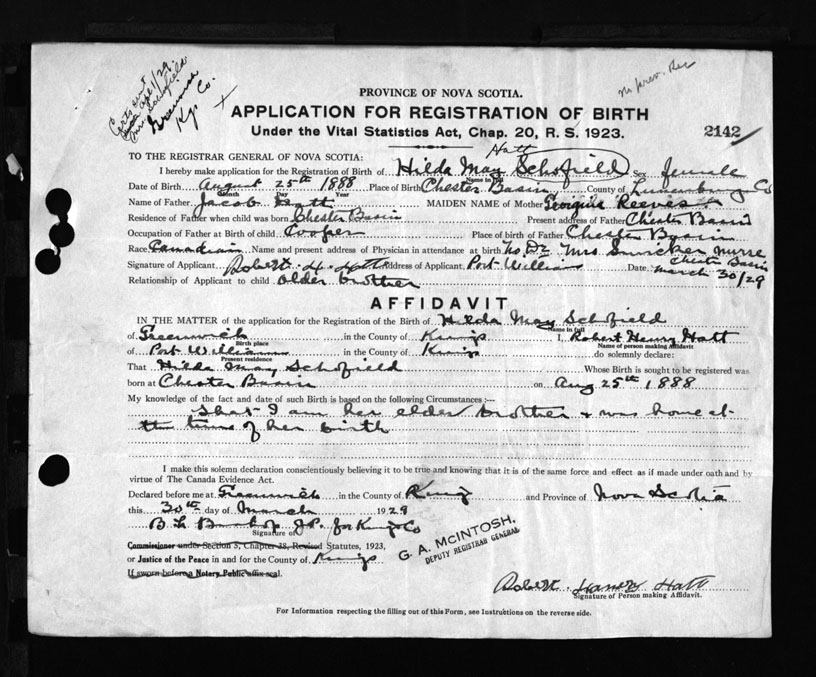 Certs sent
Apl 1/29
Mrs. Schofield
Greenwich
Kgs Co.
no prev. Rec
PROVINCE OF NOVA SCOTIA.
APPLICATION FOR REGISTRATION OF BIRTH
Under the Vital Statistics Act, Chap. 20, R. S. 1923.
2142
TO THE REGISTRAR GENERAL OF NOVA SCOTIA:
Hatt
I hereby make application for the Registration of Birth of Hilda May Schofield Sex female
Name in full
Date of Birth August 25th 1888 Place of Birth Chester Basin County of Lunenburg Co
Month Day Year
Name of Father Jacob Hatt MAIDEN NAME of Mother Georgina Reeves
Residence of Father when child was born Chester Basin Present address of Father Chester Basin
Occupation of Father at Birth of child Cooper Place of birth of Father Chester Basin
Race Canadian Name and present address of Physician in attendance at birth No Dr Mrs nurse
Chester Basin
Signature of Applicant Robert H. Hatt Address of Applicant Port William Date March 30/29
Relationship of Applicant to child older brother
AFFIDAVIT
IN THE MATTER of the application for the Registration of the Birth of Hilda May Schofield
Name in full
of Greenwich in the County of Kings I, Robert Henry Hatt
Birth place Name of person making Affidavit
of Port Williams in the County of Kings do solemnly declare:
Present residence
That Hilda May Schofield Whose Birth is sought to be registered was
born at Chester Basin on Aug 25th 1888
My knowledge of the fact and date of such Birth is based on the following Circumstances :—
that I am her elder brother & was home at
the time of her birth
I make this solemn declaration conscientiously believing it to be true and knowing that it is of the same force and effect as if made under oath and by
virtue of The Canada Evidence Act.
Declared before me at Greenwich in the County of Kings and Province of Nova Scotia
this 30th day of March 1929
B L Bishop J.P. for Kings Co
Signature of
Commissioner under Section 3, Chapter 38, Revised Statutes, 1923,
or Justice of the Peace in and for the County of Kings
If sworn before a Notary Public affix seal.
G. A. McINTOSH,
DEPUTY REGISTRAR GENERAL
Robert Henry Hatt
Signature of Person making Affidavit.
For Information respecting the filling out of this Form, see Instructions on the reverse side.